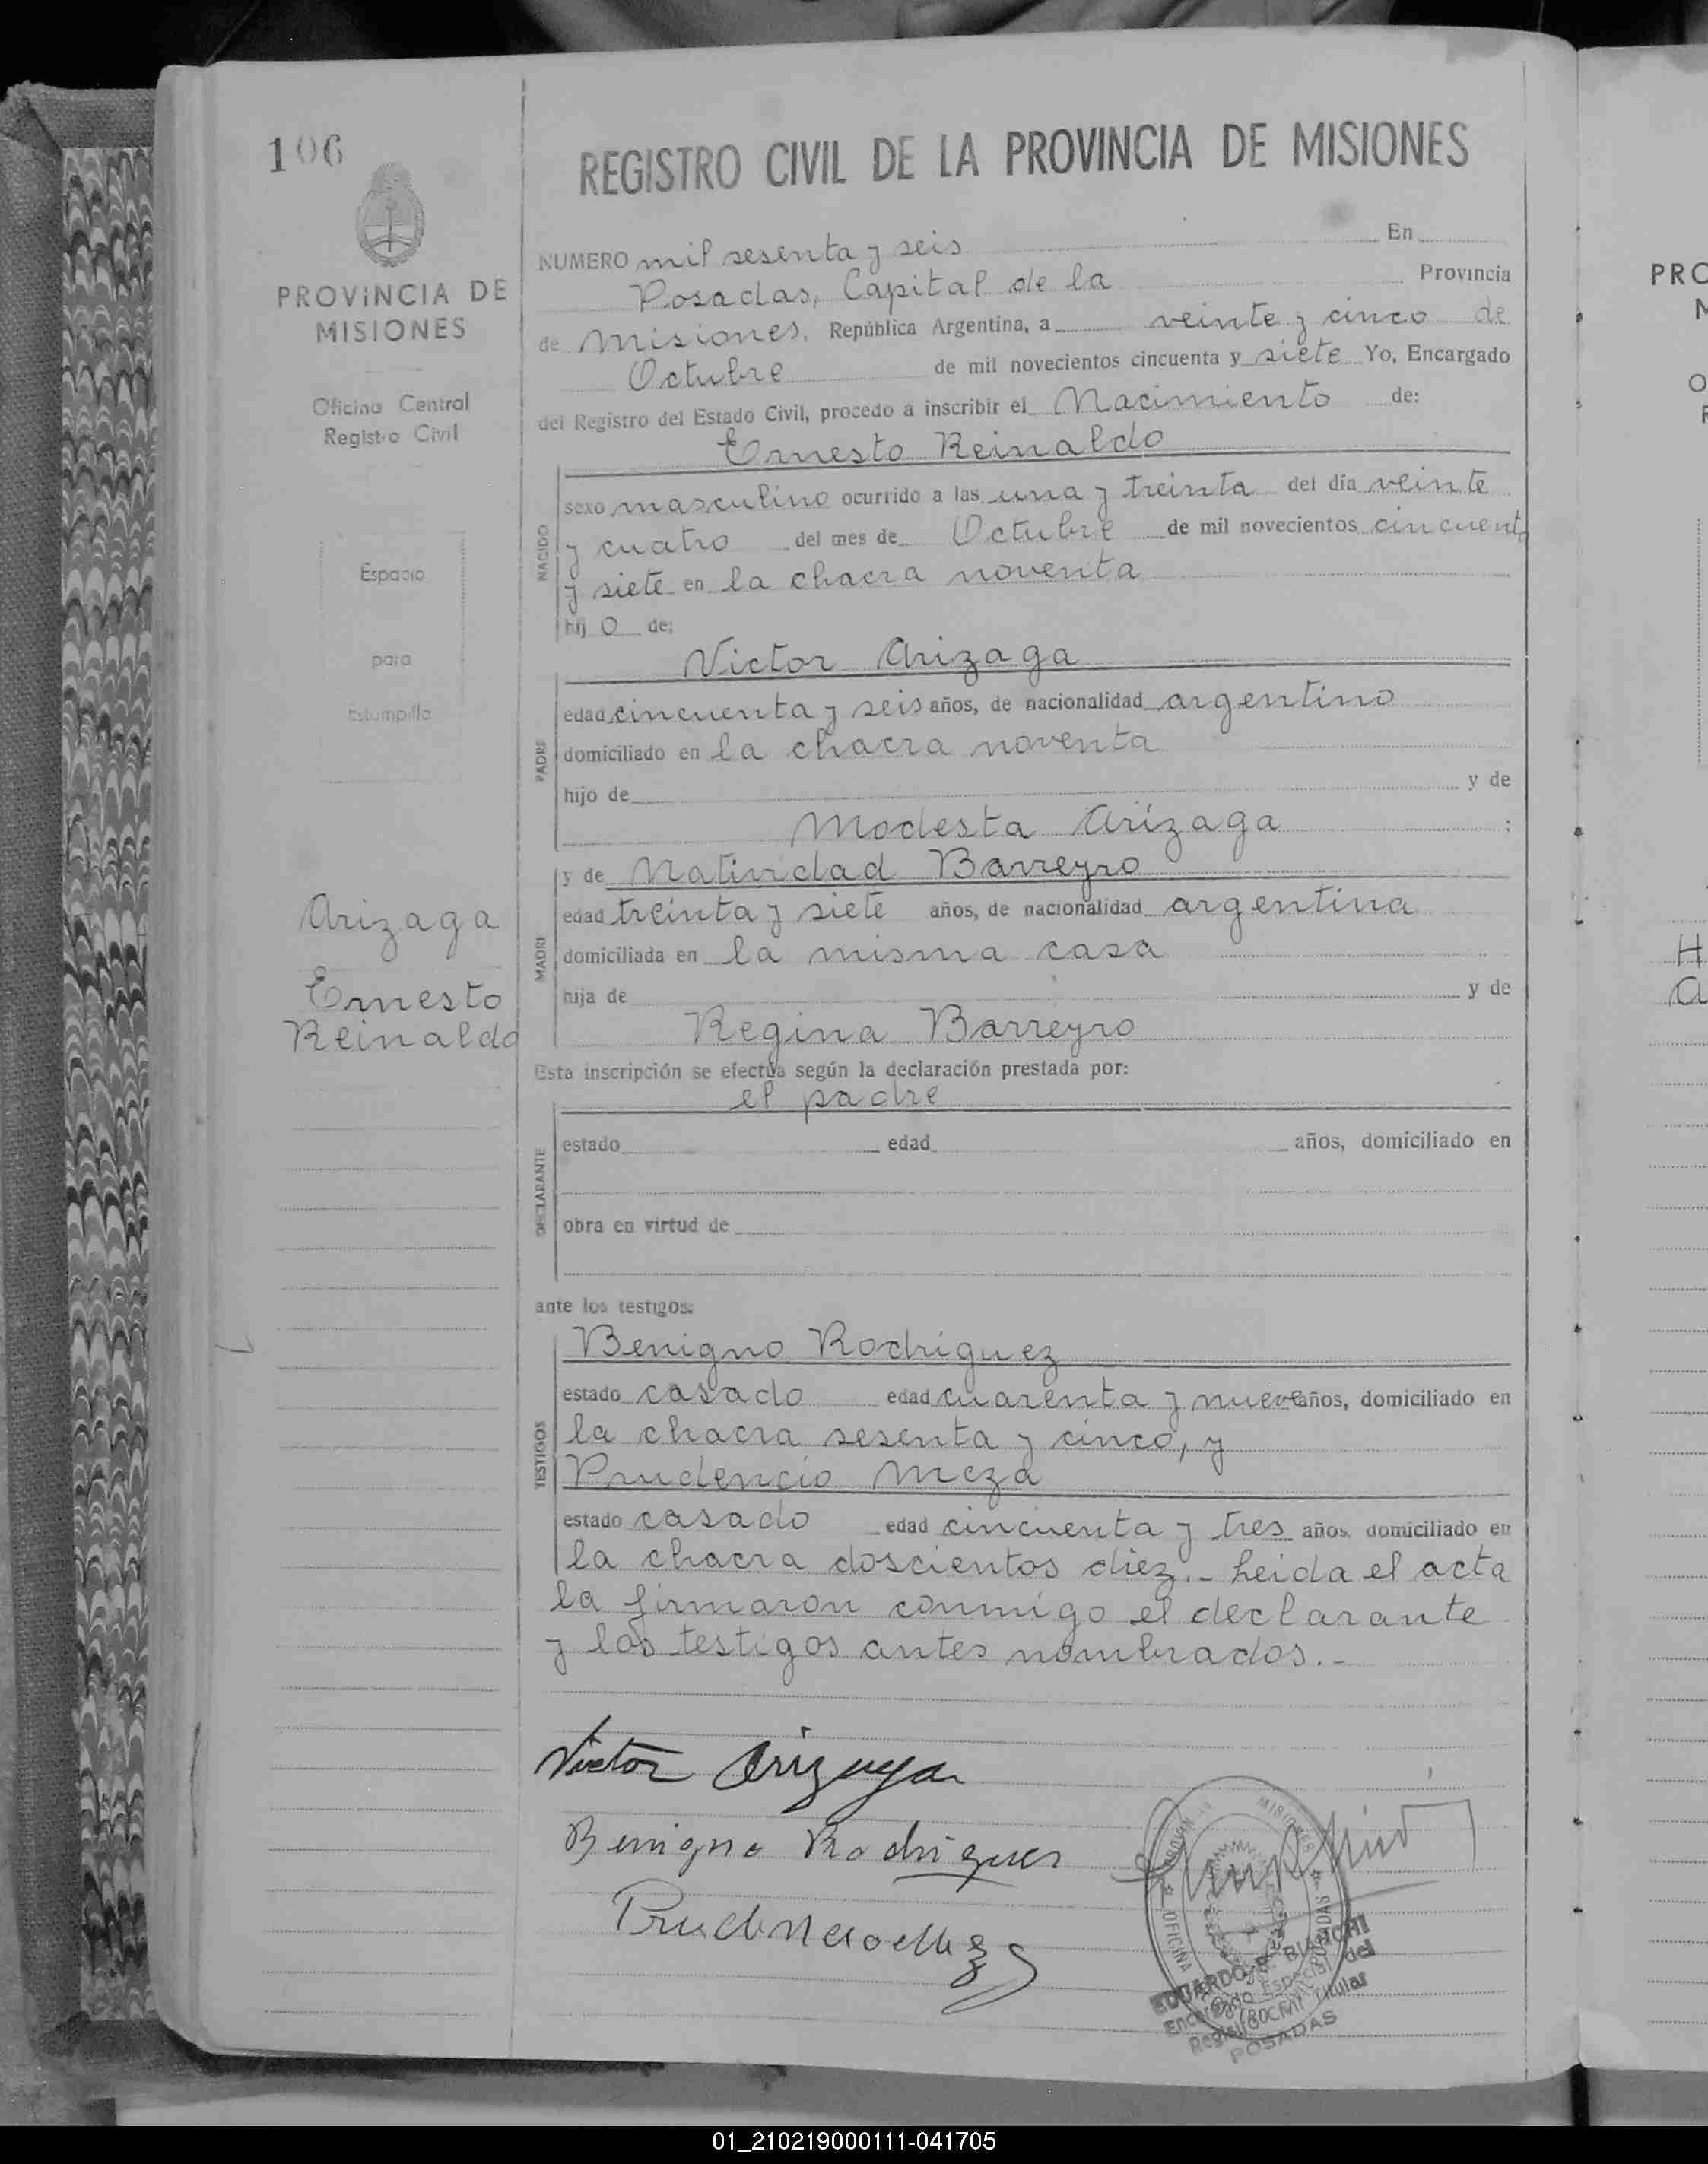 106
PROVINCIA DE
MISIONES
Oficina Central
Registro Civil
Espacio
para
Estampilla
Arizaga
Ernesto
Reinaldo
REGISTRO CIVIL DE LA PROVINCIA DE MISIONES
NUMERO mil sesenta y seis En
Posadas, Capital de la Provincia
de Misiones, República Argentina, a veinte y cinco de
Octubre de mil novecientos cincuenta y siete Yo, Encargado
del Registro del Estado Civil, procedo a inscribir el Nacimiento de:
Ernesto Reinaldo
NACIDO
sexo masculino ocurrido a las una y treinta del día veinte
y cuatro del mes de Octubre de mil novecientos cincuenta
y siete en la chacra noventa
hij o de:
Victor Arizaga
PADRE
edad cincuenta y seis años, de nacionalidad argentino
domiciliado en la chacra noventa
hijo de y de
Modesta Arizaga ;
y de Natividad Barreyro
MADRE
edad treinta y siete años, de nacionalidad argentina
domiciliada en la misma casa
hija de y de
Regina Barreyro
Esta inscripción se efectúa según la declaración prestada por:
el padre
DECLARANTE
estado edad años, domiciliado en
obra en virtud de
ante los testigos:
Benigno Rodriguez
TESTIGOS
estado casado edad cuarenta y nueve años, domiciliado en
la chacra sesenta y cinco, y
Prudencio Meza
estado casado edad cincuenta y tres años, domiciliado en
la chacra doscientos diez.- Leida el acta
la firmaron conmigo el declarante
y los testigos antes nombrados.-
Victor Arizaga
Benigno Rodriguez
Prudencio Meza
MISIONES
OFICINA
POSADAS
EDUARDO R. BIANCHI
Encargado Especial del
Titular
POSADAS
PRO
H
a
01_210219000111-041705